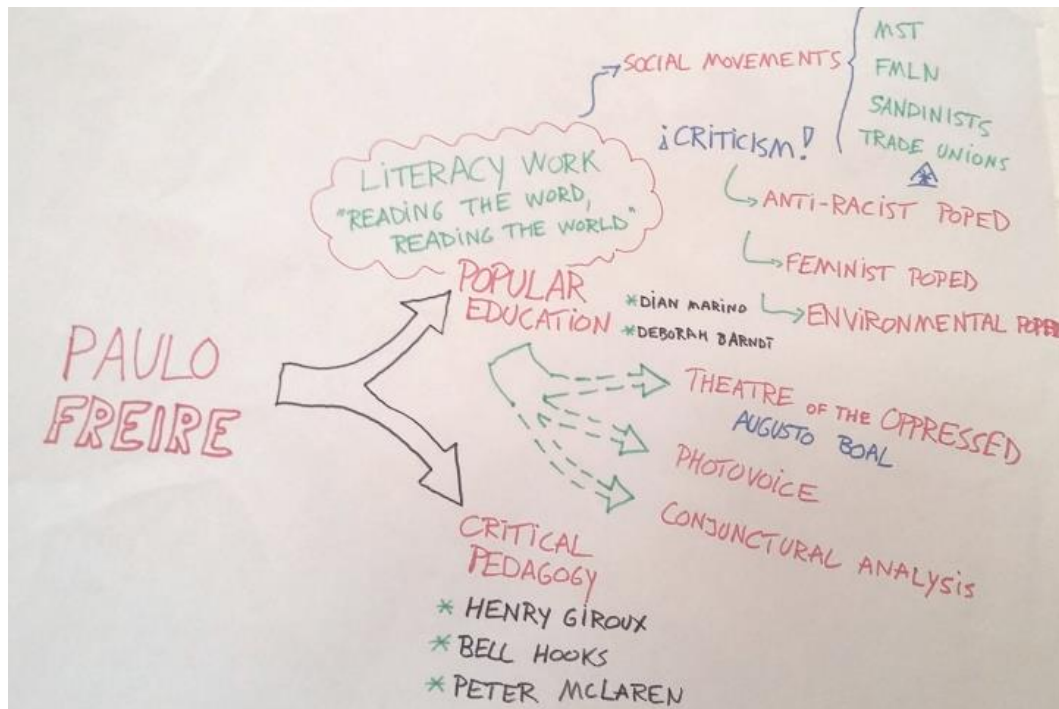 PAULO
FREIRE
LITERACY WORK
"READING THE WORD,
READING THE WORLD"
POPULAR
EDUCATION
SOCIAL MOVEMENTS
MST
FMLN
SANDINISTS
TRADE UNIONS
¡CRITICISM!
ANTI-RACIST POPED
FEMINIST POPED
ENVIRONMENTAL POPED
*DIAN MARINO
*DEBORAH BARNDT
THEATRE OF THE OPPRESSED
AUGUSTO BOAL
PHOTOVOICE
CONJUNCTURAL ANALYSIS
CRITICAL
PEDAGOGY
* HENRY GIROUX
* BELL HOOKS
* PETER MCLAREN